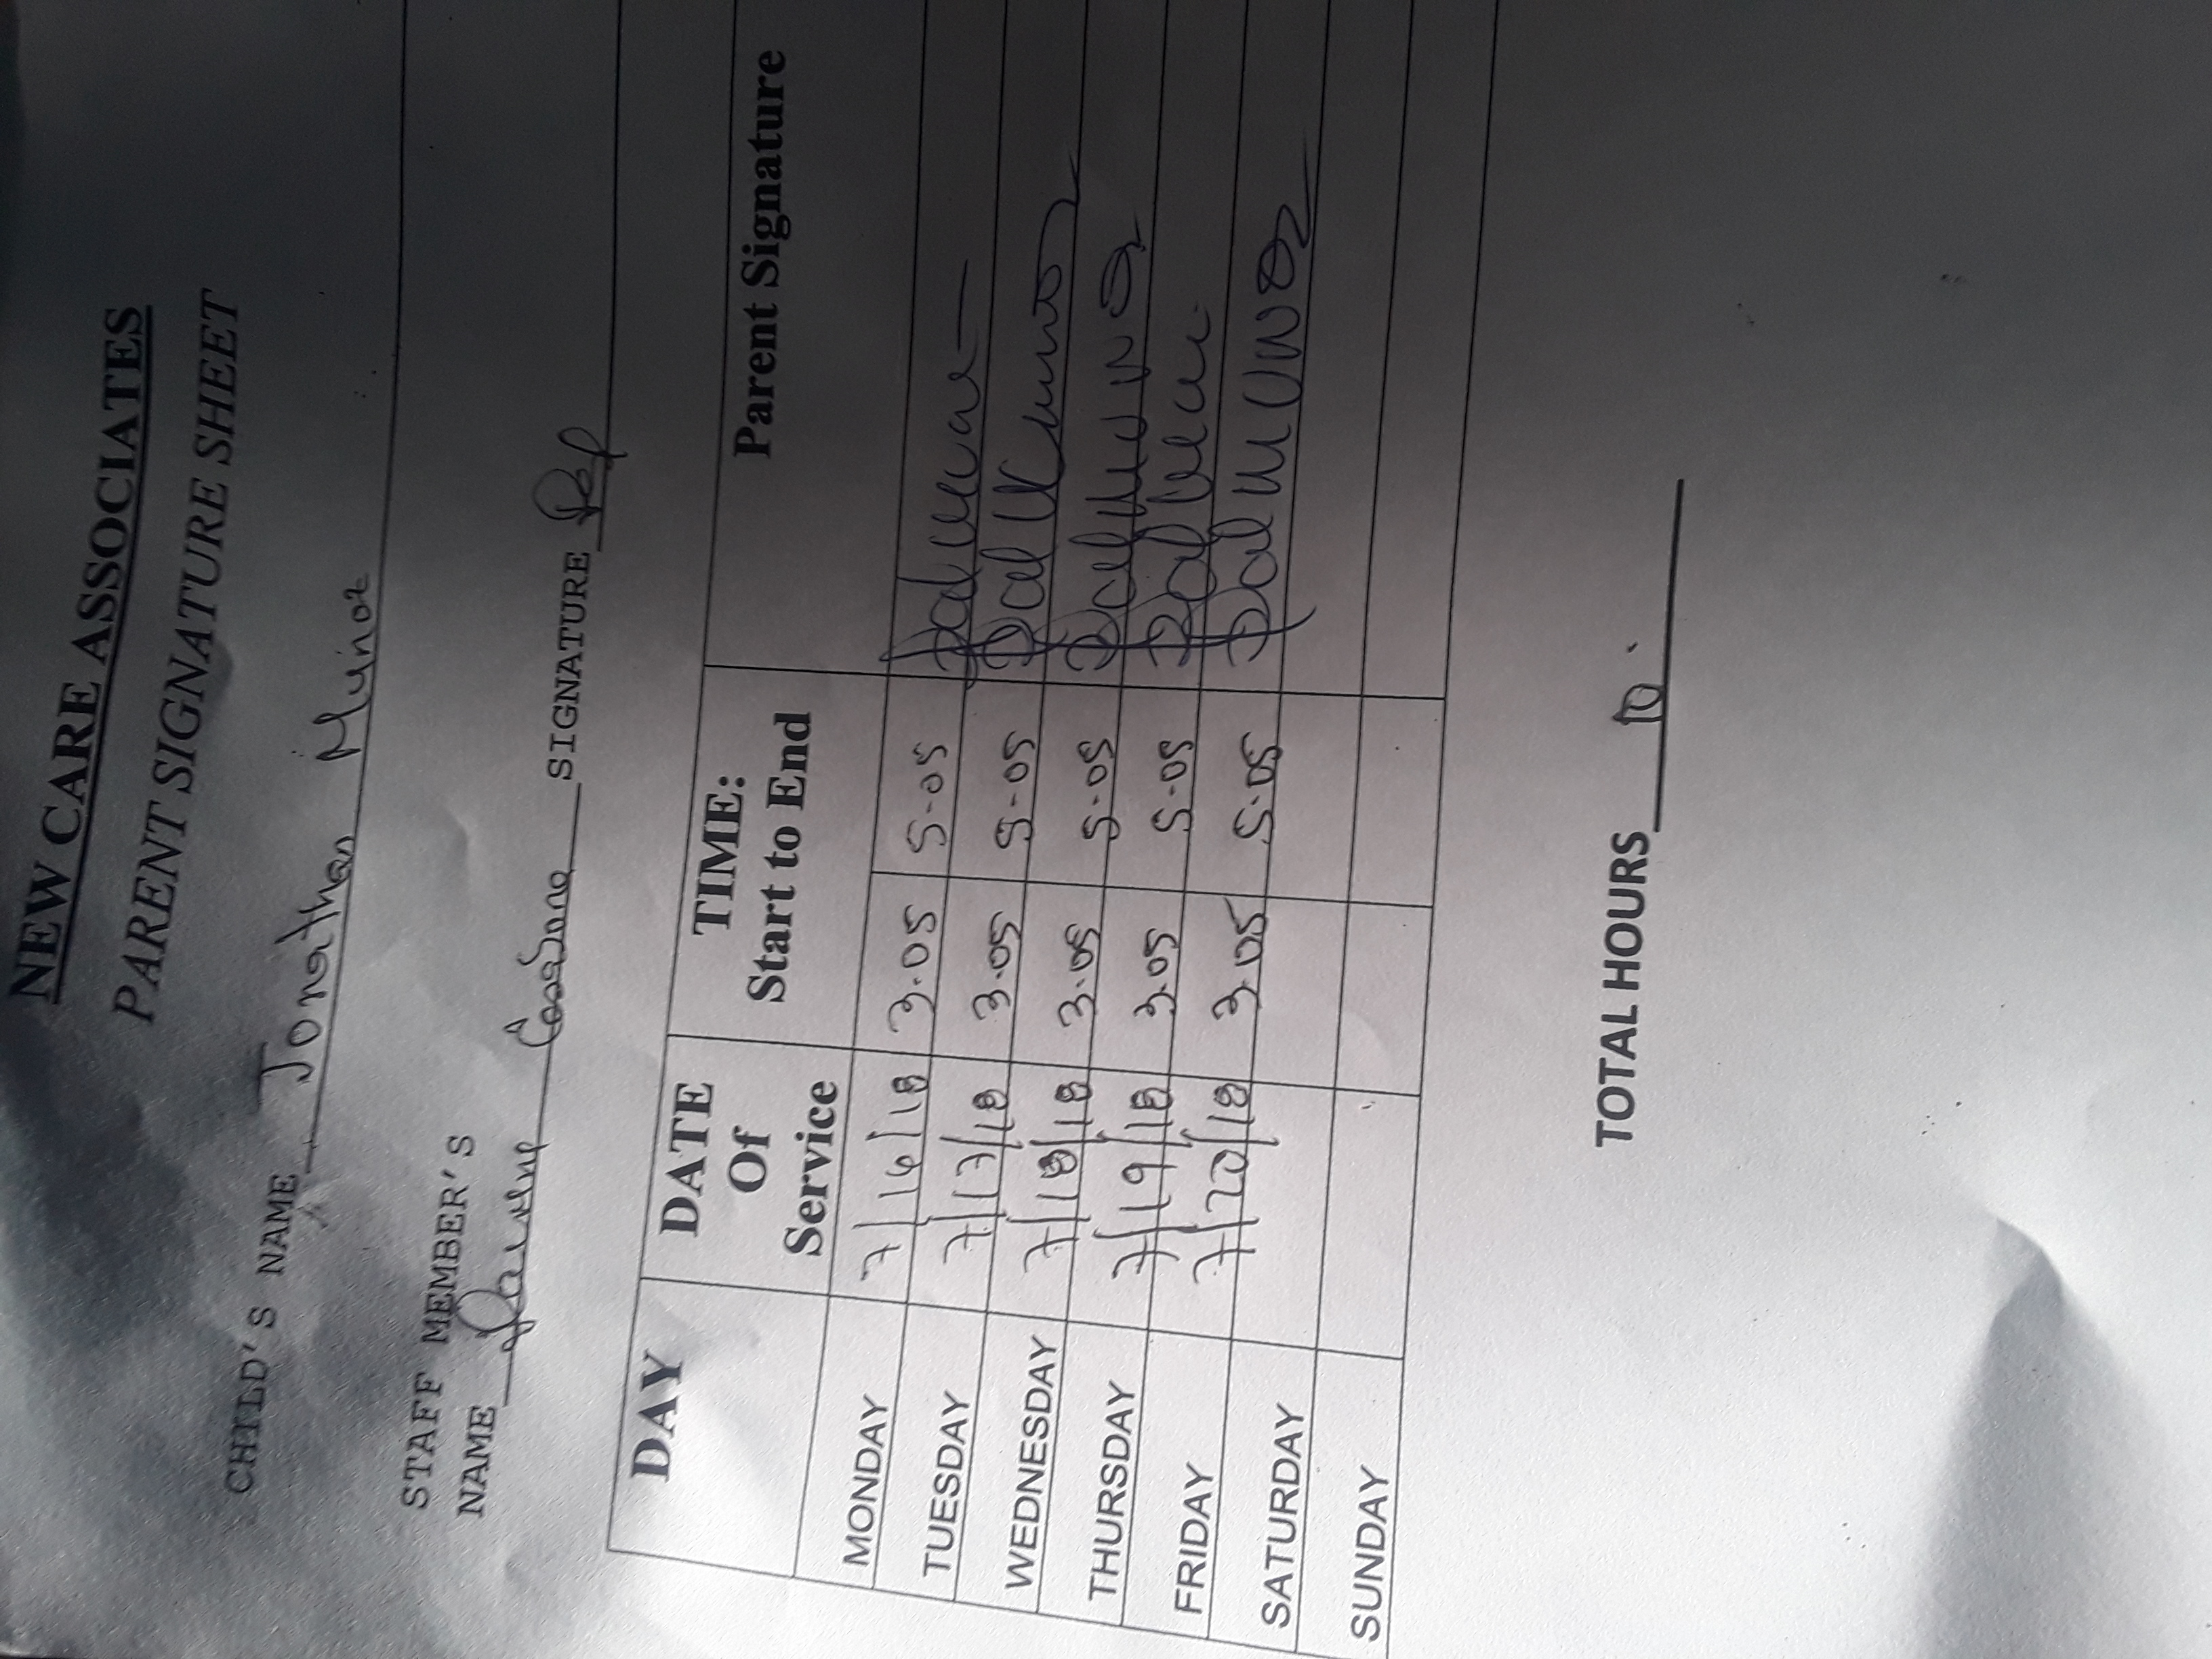 NEW CARE ASSOCIATES
PARENT SIGNATURE SHEET
CHILD'S NAME Jonathan Munoz
STAFF MEMBER'S
NAME SIGNATURE
DAY DATE Of Service TIME: Start to End Parent Signature
MONDAY 7/16/18 3.05 5-05
TUESDAY 7/17/18 3.05 5-05
WEDNESDAY 7/18/18 3.05 5-05
THURSDAY 7/19/18 3.05 5-05
FRIDAY 7/20/18 3.05 5.05
SATURDAY
SUNDAY
TOTAL HOURS 10